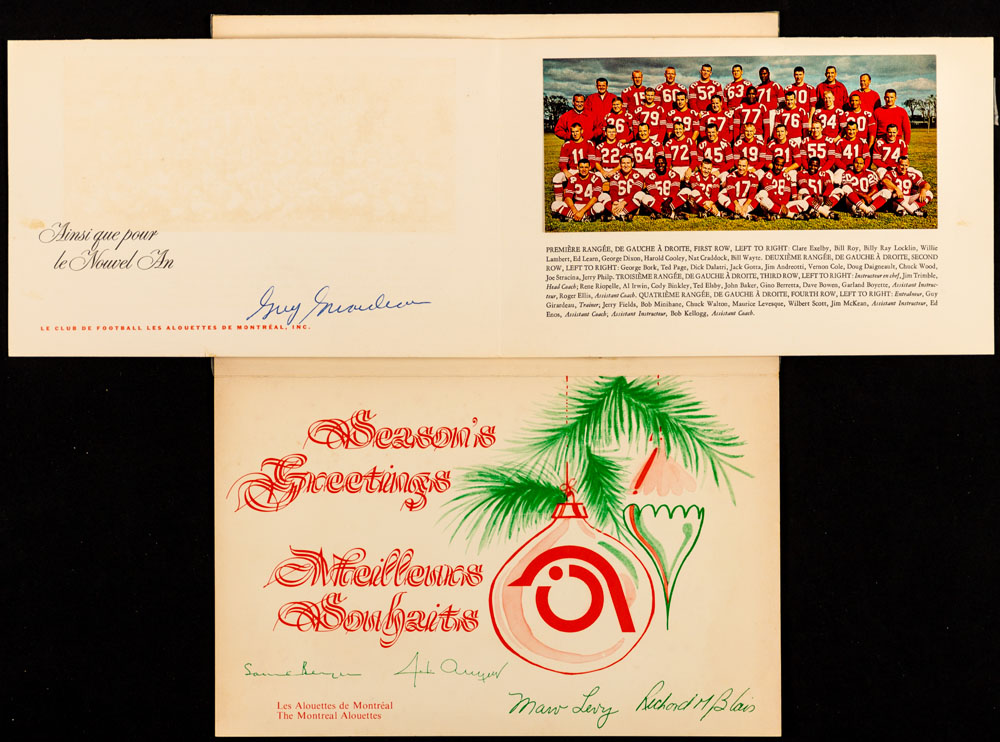 Ainsi que pour
le Nouvel An
Guy Girardeau
LE CLUB DE FOOTBALL LES ALOUETTES DE MONTRÉAL, INC.
15 60 52 63 71 70
36 79 29 67 77 76 34 30
11 22 64 72 45 19 21 55 41 74
24 66 58 26 17 28 51 20 39
PREMIÈRE RANGÉE, DE GAUCHE À DROITE, FIRST ROW, LEFT TO RIGHT: Clare Exelby, Bill Roy, Billy Ray Locklin, Willie
Lambert, Ed Learn, George Dixon, Harold Cooley, Nat Craddock, Bill Wayte. DEUXIÈME RANGÉE, DE GAUCHE À DROITE, SECOND
ROW, LEFT TO RIGHT: George Bork, Ted Page, Dick Dalatri, Jack Gotta, Jim Andreotti, Vernon Cole, Doug Daigneault, Chuck Wood,
Joe Stracina, Jerry Philp. TROISIÈME RANGÉE, DE GAUCHE À DROITE, THIRD ROW, LEFT TO RIGHT: Instructeur en chef, Jim Trimble,
Head Coach; Rene Riopelle, Al Irwin, Cody Binkley, Ted Elsby, John Baker, Gino Berretta, Dave Bowen, Garland Boyette, Assistant Instruc-
teur, Roger Ellis, Assistant Coach. QUATRIÈME RANGÉE, DE GAUCHE À DROITE, FOURTH ROW, LEFT TO RIGHT: Entraîneur, Guy
Girardeau, Trainer; Jerry Fields, Bob Minihane, Chuck Walton, Maurice Levesque, Wilbert Scott, Jim McKean, Assistant Instructeur, Ed
Enos, Assistant Coach; Assistant Instructeur, Bob Kellogg, Assistant Coach.
Season's
Greetings
Meilleurs
Souhaits
Sam Berger
Marv Levy Richard M Blais
Les Alouettes de Montréal
The Montreal Alouettes